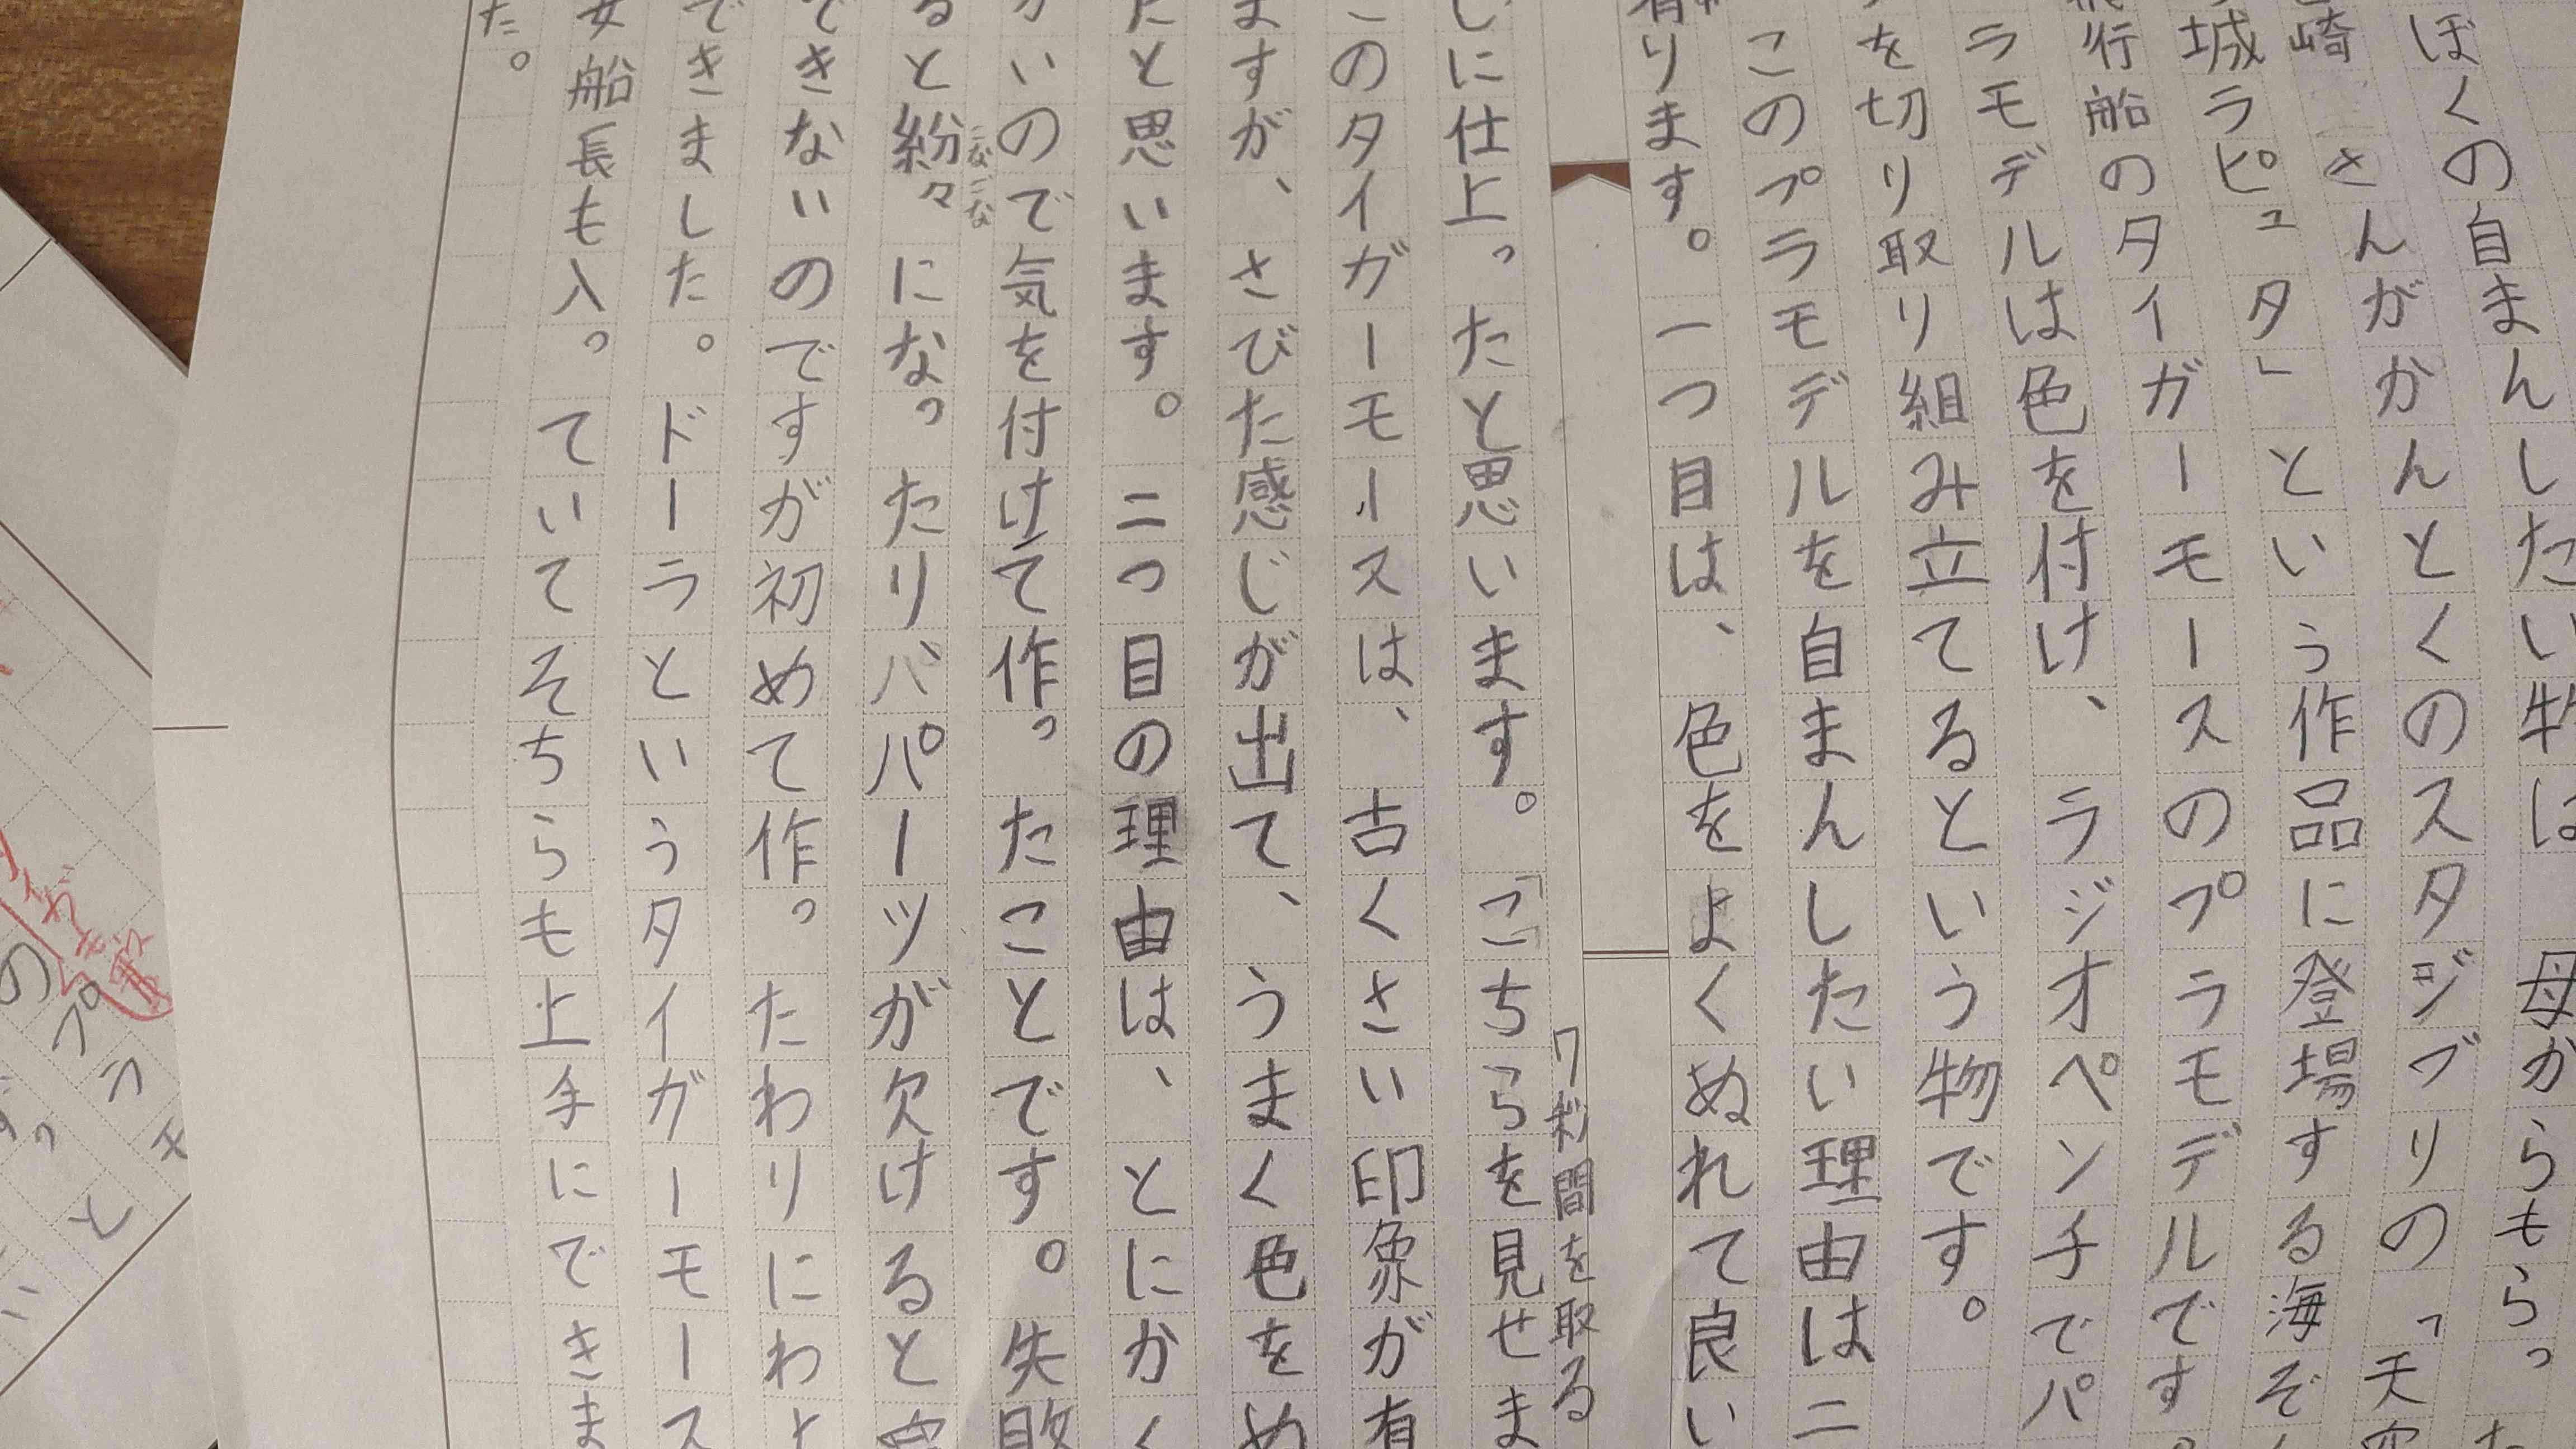 ぼくの自まんしたい物は　母からもらっ
崎　さんがかんとくのスタジブリの「天空
城ラピュタ」という作品に登場する海ぞく
飛行船のタイガーモースのプラモデルです。
ラモデルは色を付け、ラジオペンチでパ
を切り取り組み立てるという物です。
このプラモデルを自まんしたい理由は二
有ります。一つ目は、色をよくぬれて良い
７秒間を取る
しに仕上ったと思います。「こちらを見せま
このタイガーモースは、古くさい印象が有
ますが、さびた感じが出て、うまく色をめ
たと思います。二つ目の理由は、とにかく
かいので気を付けて作ったことです。失敗
ると紛々になったりバパーツが欠けると
こなごな
できないのですが初めて作ったわりにわと
できました。ドーラというタイガーモース
女船長も入っていてそちらも上手にできま
た。